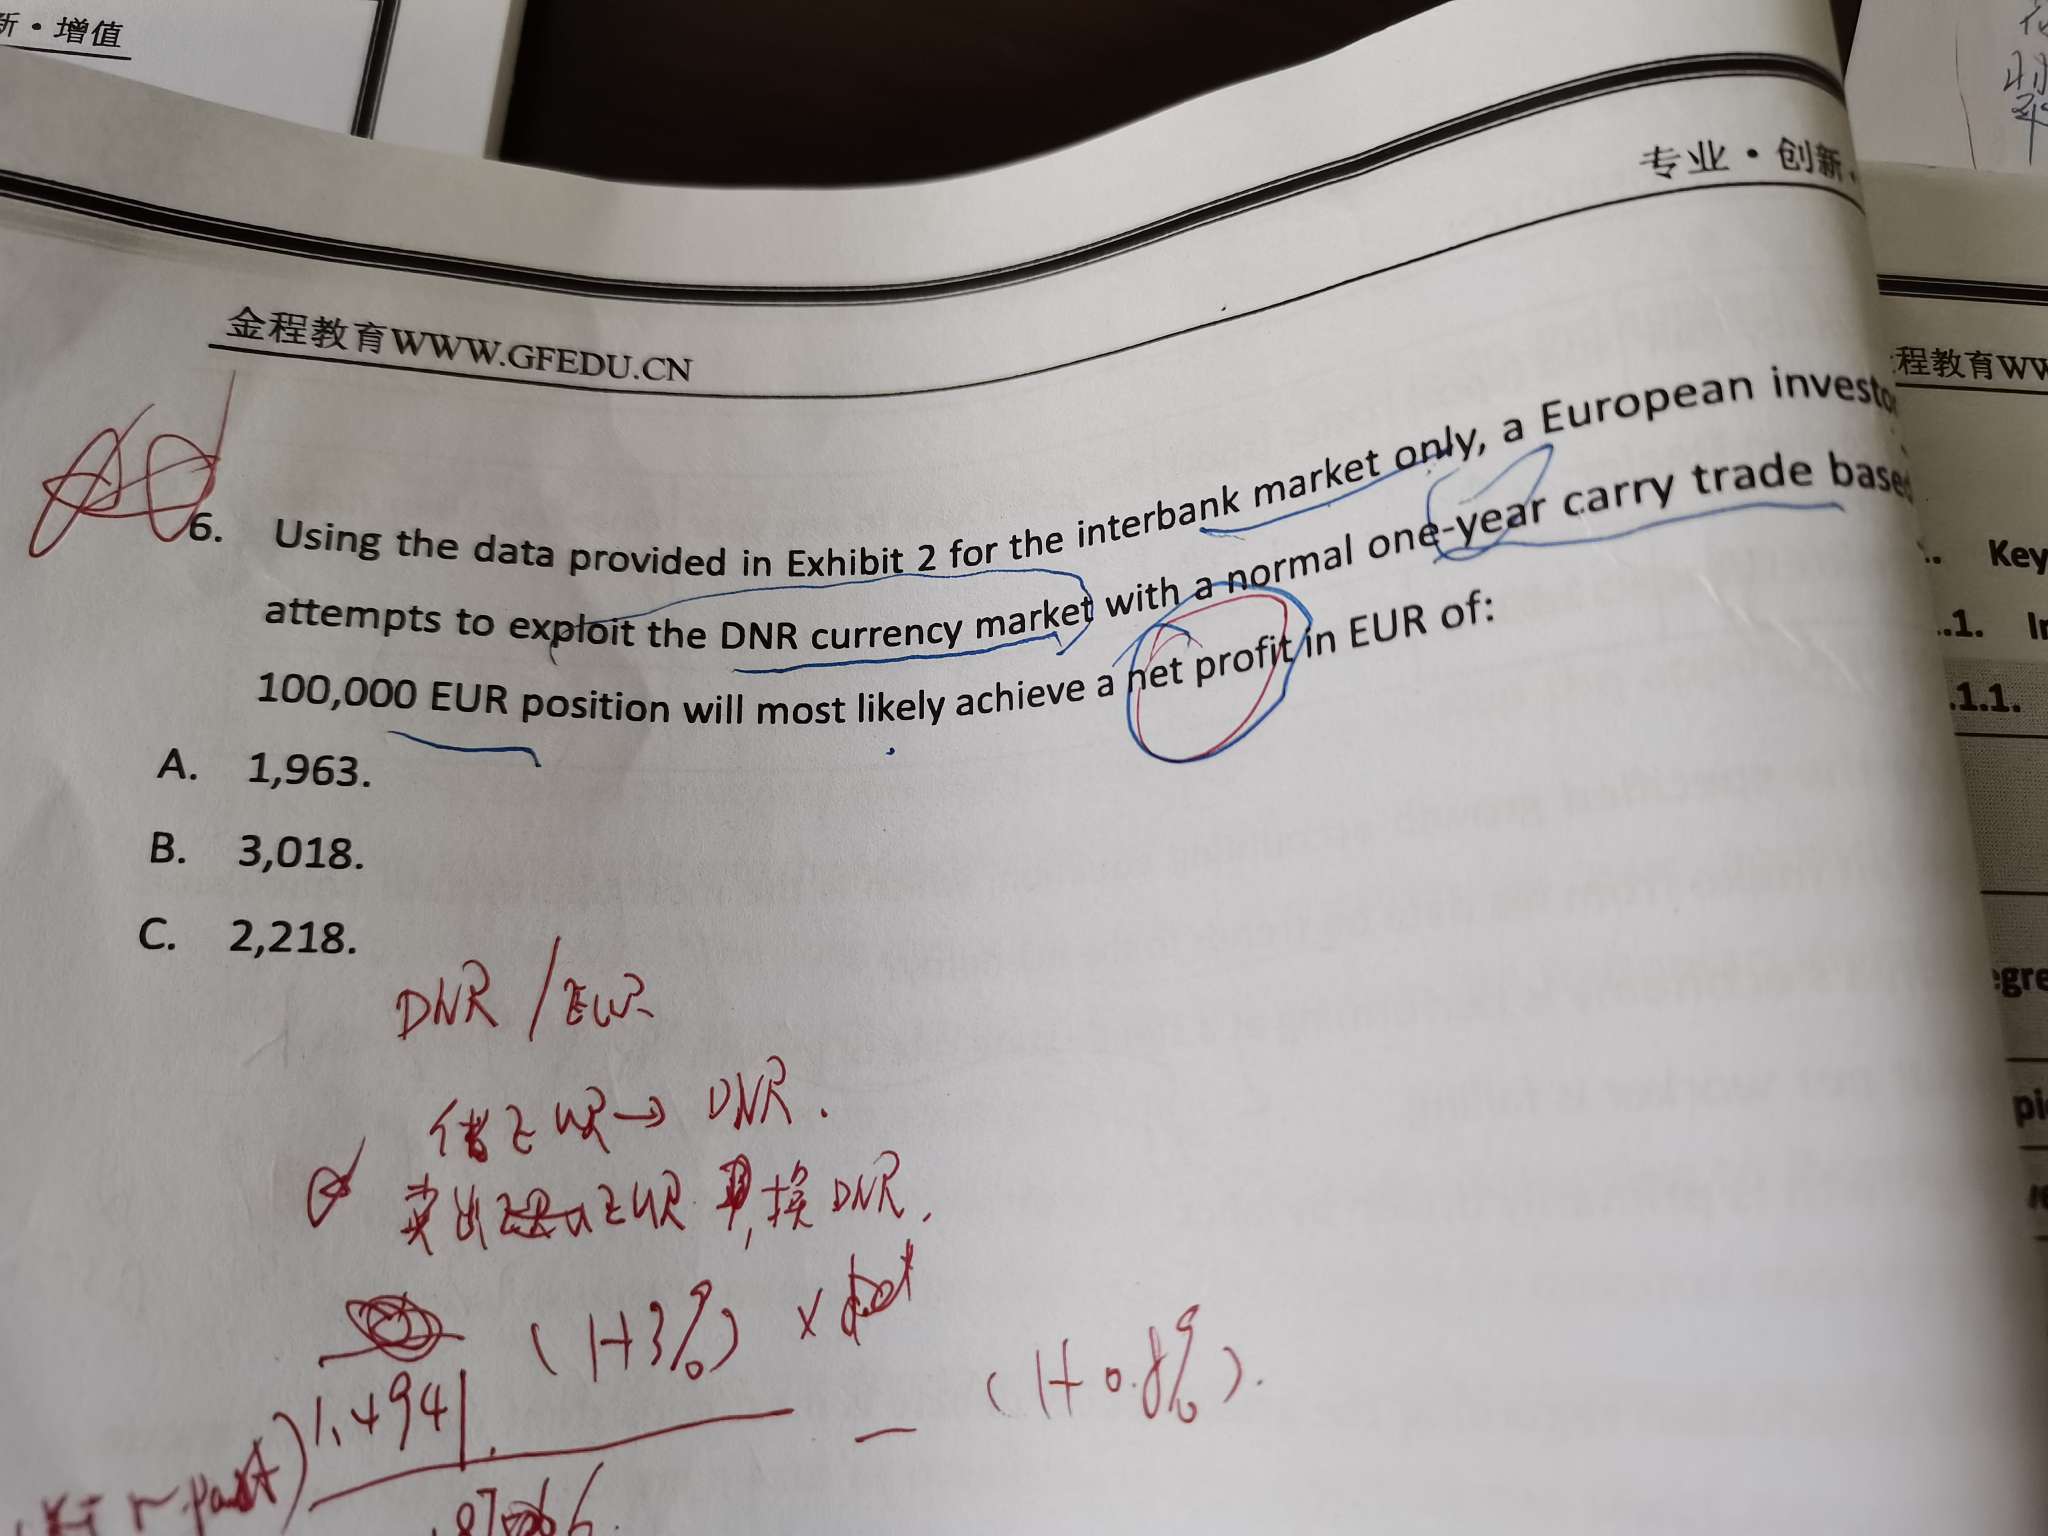 新·增值
专业·创新
金程教育WWW.GFEDU.CN
程教育WW
6. Using the data provided in Exhibit 2 for the interbank market only, a European investo
attempts to exploit the DNR currency market with a normal one-year carry trade based
100,000 EUR position will most likely achieve a net profit in EUR of:
A. 1,963.
B. 3,018.
C. 2,218.
DNR / EUR
借EUR→DNR.
卖出EUR,换DNR,
(1+3%) ×
1.4941
- (1+0.8%).
Key
.1. In
.1.1.
egre
pi